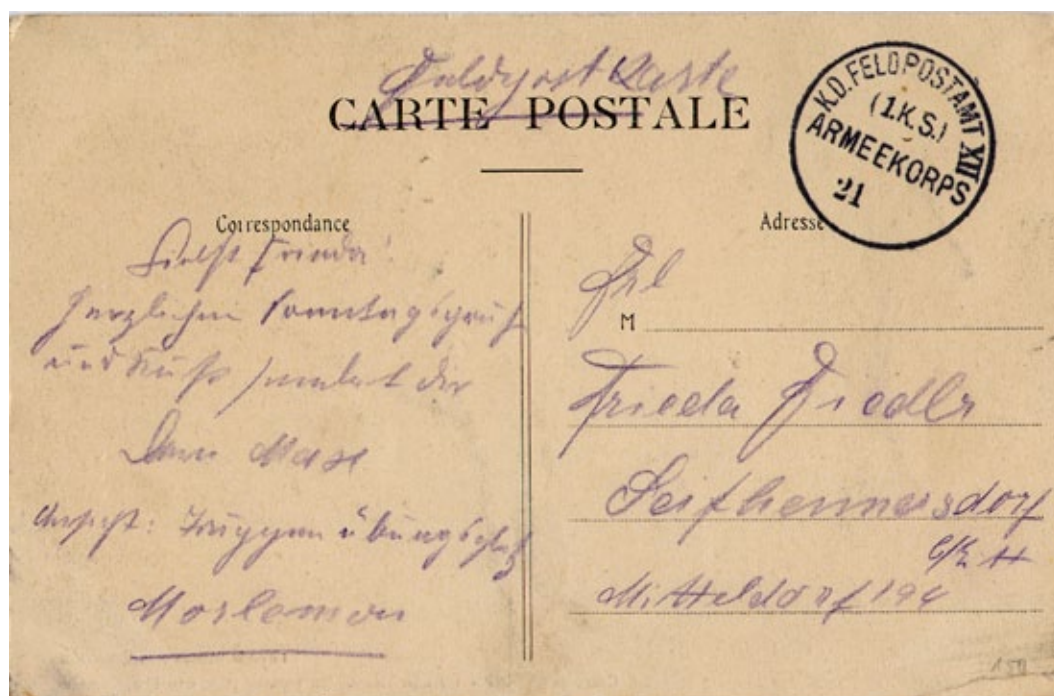 Feldpost Karte
CARTE POSTALE
K.D. FELDPOSTAMT XII
(1.K.S.)
ARMEEKORPS
21
Correspondance
Liebste Frieda!
Herzlichen Sonntagsgruß
und Kuß sendet dir
Dein Max
Ansicht: Truppenübungsplatz
Adresse
Frl
M
Frieda Fiedler
Seifhennersdorf
Mitteldorf